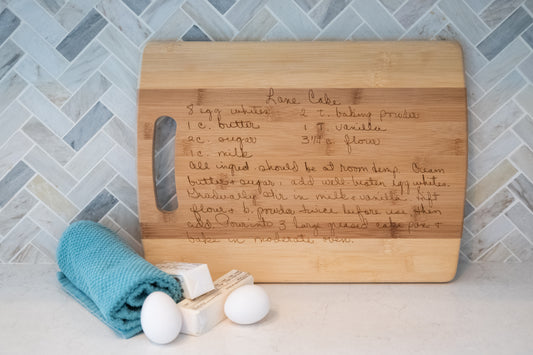 Lane Cake
8 egg whites 2 T. baking powder
1 c. butter 1 T. vanilla
2c. sugar 3¼ c. flour
1c. milk
All ingred. should be at room temp. Cream
butter & sugar, add well beaten egg whites.
Gradually stir in milk & vanilla. Sift
flour & b. powder twice before use then
add. Pour into 3 large greased cake pans &
bake in moderate oven.